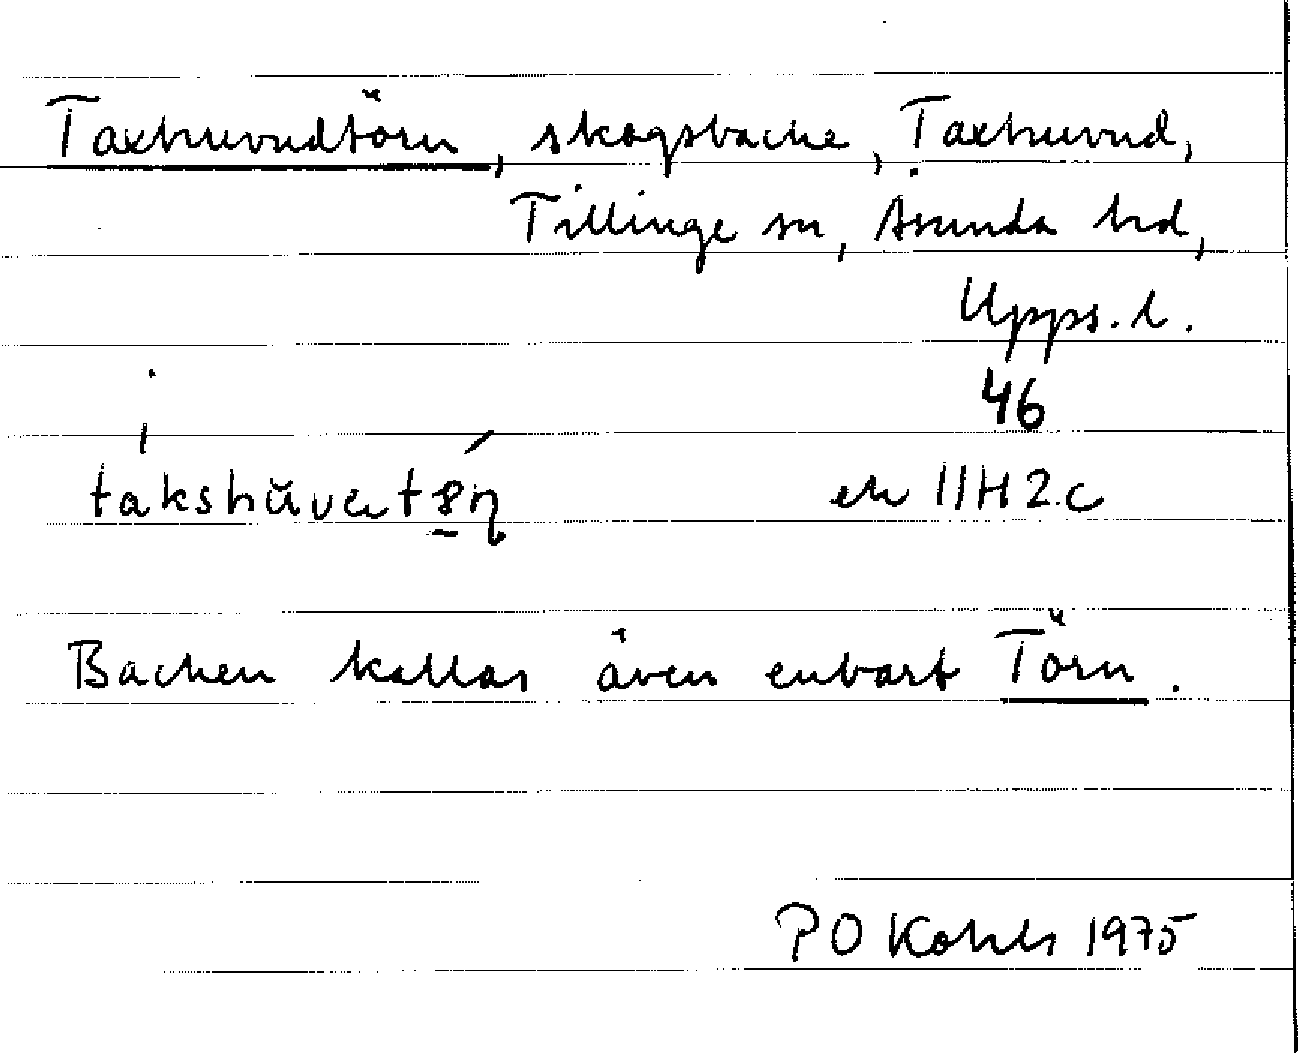 Taxhuvudtörn, skogsbacke, Taxhuvud,
Tillinge sn, Åsunda hd,
Upps. l.
46
takshŭvɐt ek 11H 2c
Backen kallas även enbart Törn.
P O Kohls 1975